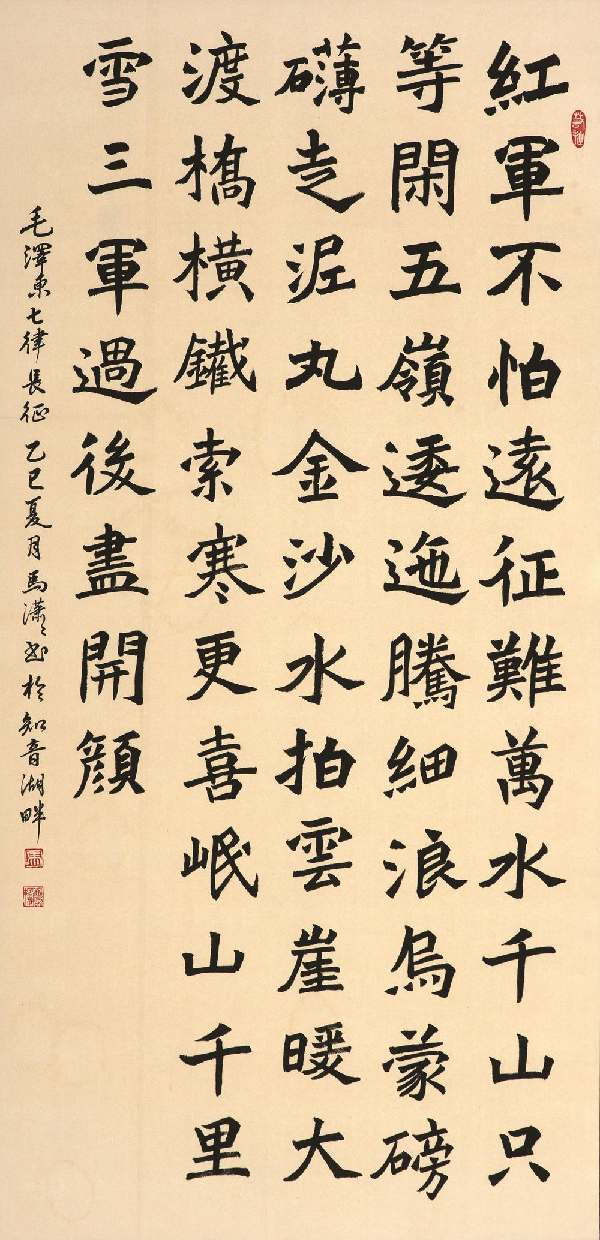 紅軍不怕遠征難萬水千山只
等閑五嶺逶迤騰細浪烏蒙磅
礴走泥丸金沙水拍雲崖暖大
渡橋橫鐵索寒更喜岷山千里
雪三軍過後盡開顏
毛澤東七律長征乙巳夏月馬瀟〻書於知音湖畔